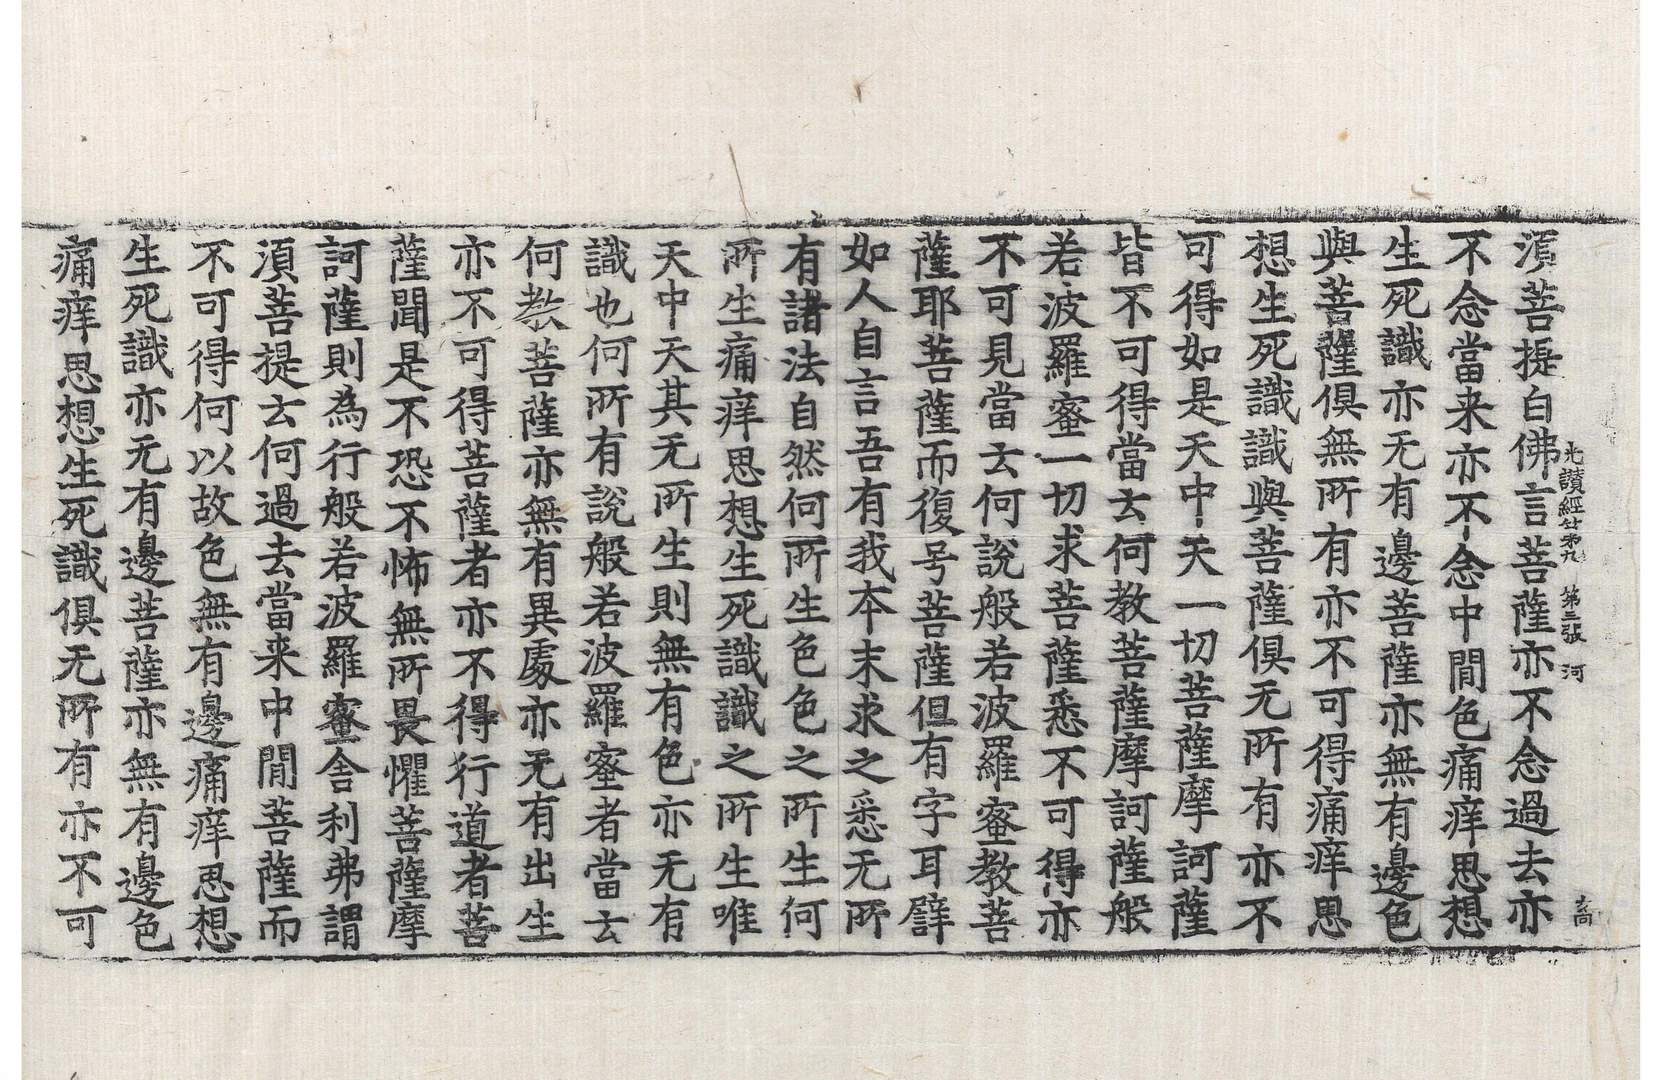 光讃經苐九　第三張　河
湏菩提白佛言菩薩亦不念過去亦
不念當来亦不念中間色痛痒思想
生死識亦无有邊菩薩亦無有邊色
與菩薩俱無所有亦不可得痛痒思
想生死識識與菩薩俱无所有亦不
可得如是天中天一切菩薩摩訶薩
皆不可得當去何教菩薩摩訶薩般
若波羅蜜一切求菩薩悉不可得亦
不可見當云何說般若波羅蜜教菩
薩耶菩薩而復号菩薩但有字耳譬
如人自言吾有我本末求之悉无所
有諸法自然何所生色色之所生何
所生痛痒思想生死識識之所生唯
天中天其无所生則無有色亦无有
識也何所有說般若波羅蜜者當云
何教菩薩亦無有異處亦无有出生
亦不可得菩薩者亦不得行道者菩
薩聞是不恐不怖無所畏懼菩薩摩
訶薩則為行般若波羅蜜舎利弗謂
湏菩提云何過去當来中間菩薩而
不可得何以故色無有邊痛痒思想
生死識亦无有邊菩薩亦無有邊色
痛痒思想生死識俱无所有亦不可